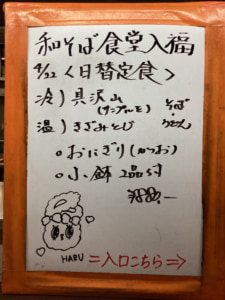 和そば食堂入福
4/22 <日替定食>
冷) 具沢山
(サンプルモ)
そば
・うどん
温) きざみとじ
○おにぎり(かつお)
○小鉢 2品付
HARU
=入口こちら⇒